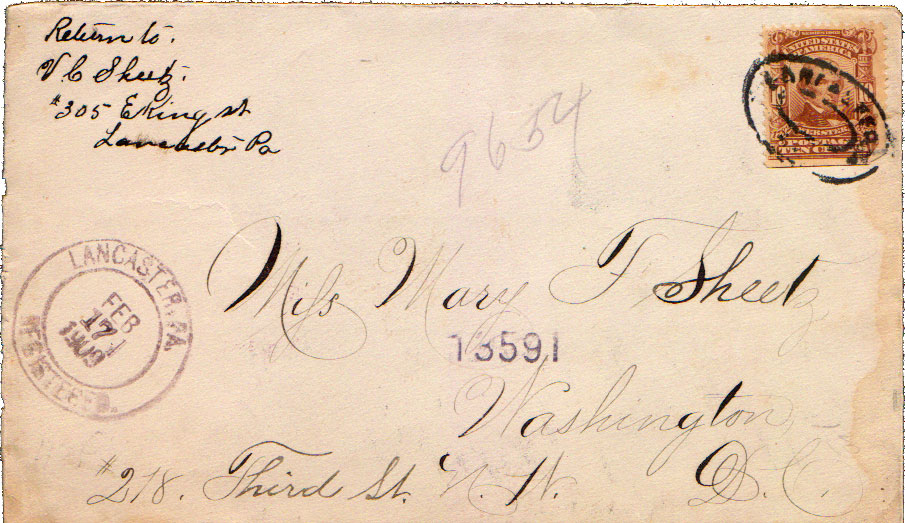 Return to.
V C Sheetz.
#305 E King st
Lancaster Pa
UNITED STATES
OF AMERICA
WEBSTER
POSTAGE
TEN CENTS
LANCASTER
9654
LANCASTER, PA.
FEB
17
1909
REGISTERED.
Miss Mary F Sheetz
13591
Washington
#218. Third St. N. W. D. C.